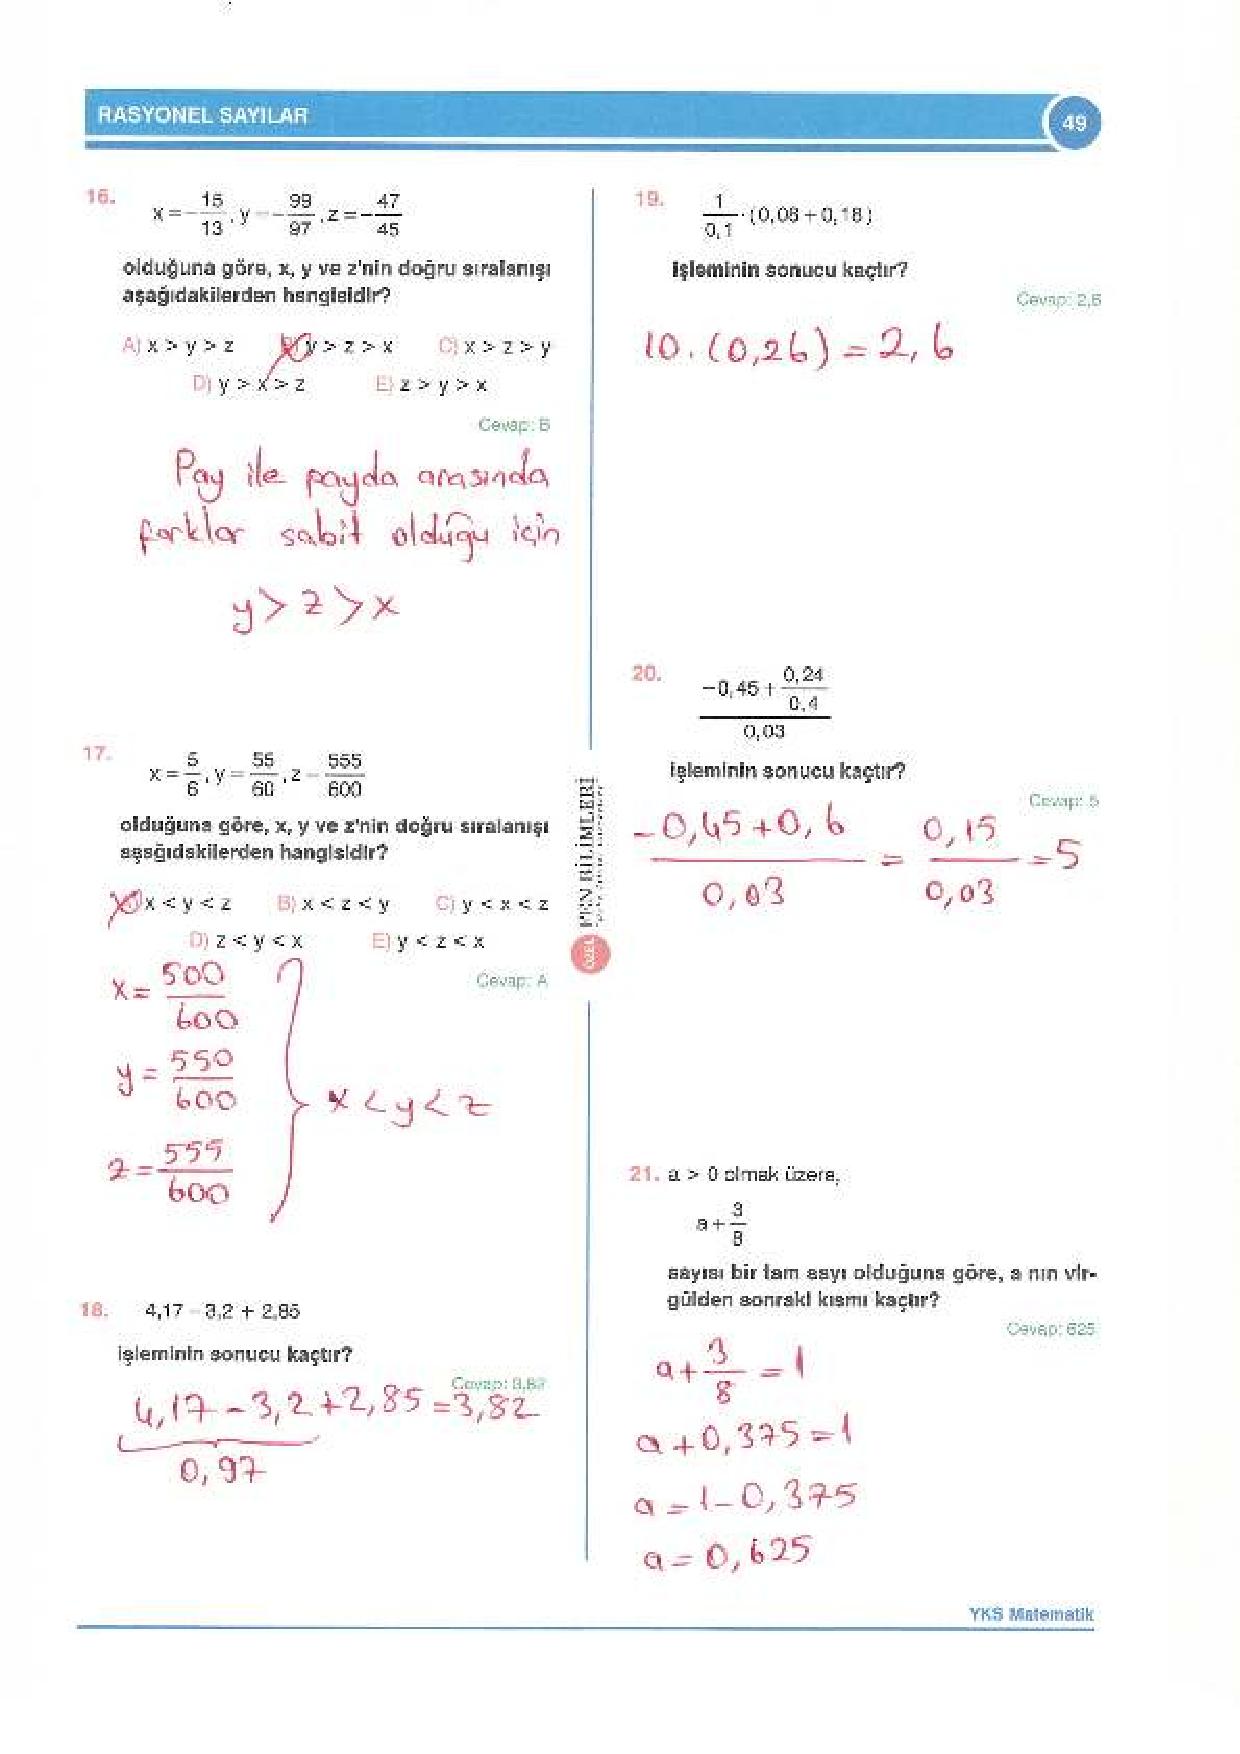 RASYONEL SAYILAR
49
16. x = -15/13, y = -99/97, z = -47/45
olduğuna göre, x, y ve z'nin doğru sıralanışı
aşağıdakilerden hangisidir?
A) x > y > z B) y > z > x C) x > z > y
D) y > x > z E) z > y > x
Cevap: B
Pay ile payda arasında
farklar sabit olduğu için
y > z > x
17. x = 5/6, y = 55/60, z = 555/600
olduğuna göre, x, y ve z'nin doğru sıralanışı
aşağıdakilerden hangisidir?
A) x < y < z B) x < z < y C) y < x < z
D) z < y < x E) y < z < x
Cevap: A
x = 500/600
y = 550/600
z = 555/600
x < y < z
18. 4,17 - 3,2 + 2,85
işleminin sonucu kaçtır?
Cevap: 3,82
4,17 - 3,2 + 2,85 = 3,82
0,97
ÖZEL FEN BİLİMLERİ
19. 1/0,1 · (0,08 + 0,18)
işleminin sonucu kaçtır?
Cevap: 2,6
10 . (0,26) = 2,6
20. (-0,45 + 0,24/0,4)/0,03
işleminin sonucu kaçtır?
Cevap: 5
(-0,45 + 0,6)/0,03 = 0,15/0,03 = 5
21. a > 0 olmak üzere,
a + 3/8
sayısı bir tam sayı olduğuna göre, a nın vir-
gülden sonraki kısmı kaçtır?
Cevap: 625
a + 3/8 = 1
a + 0,375 = 1
a = 1 - 0,375
a = 0,625
YKS Matematik